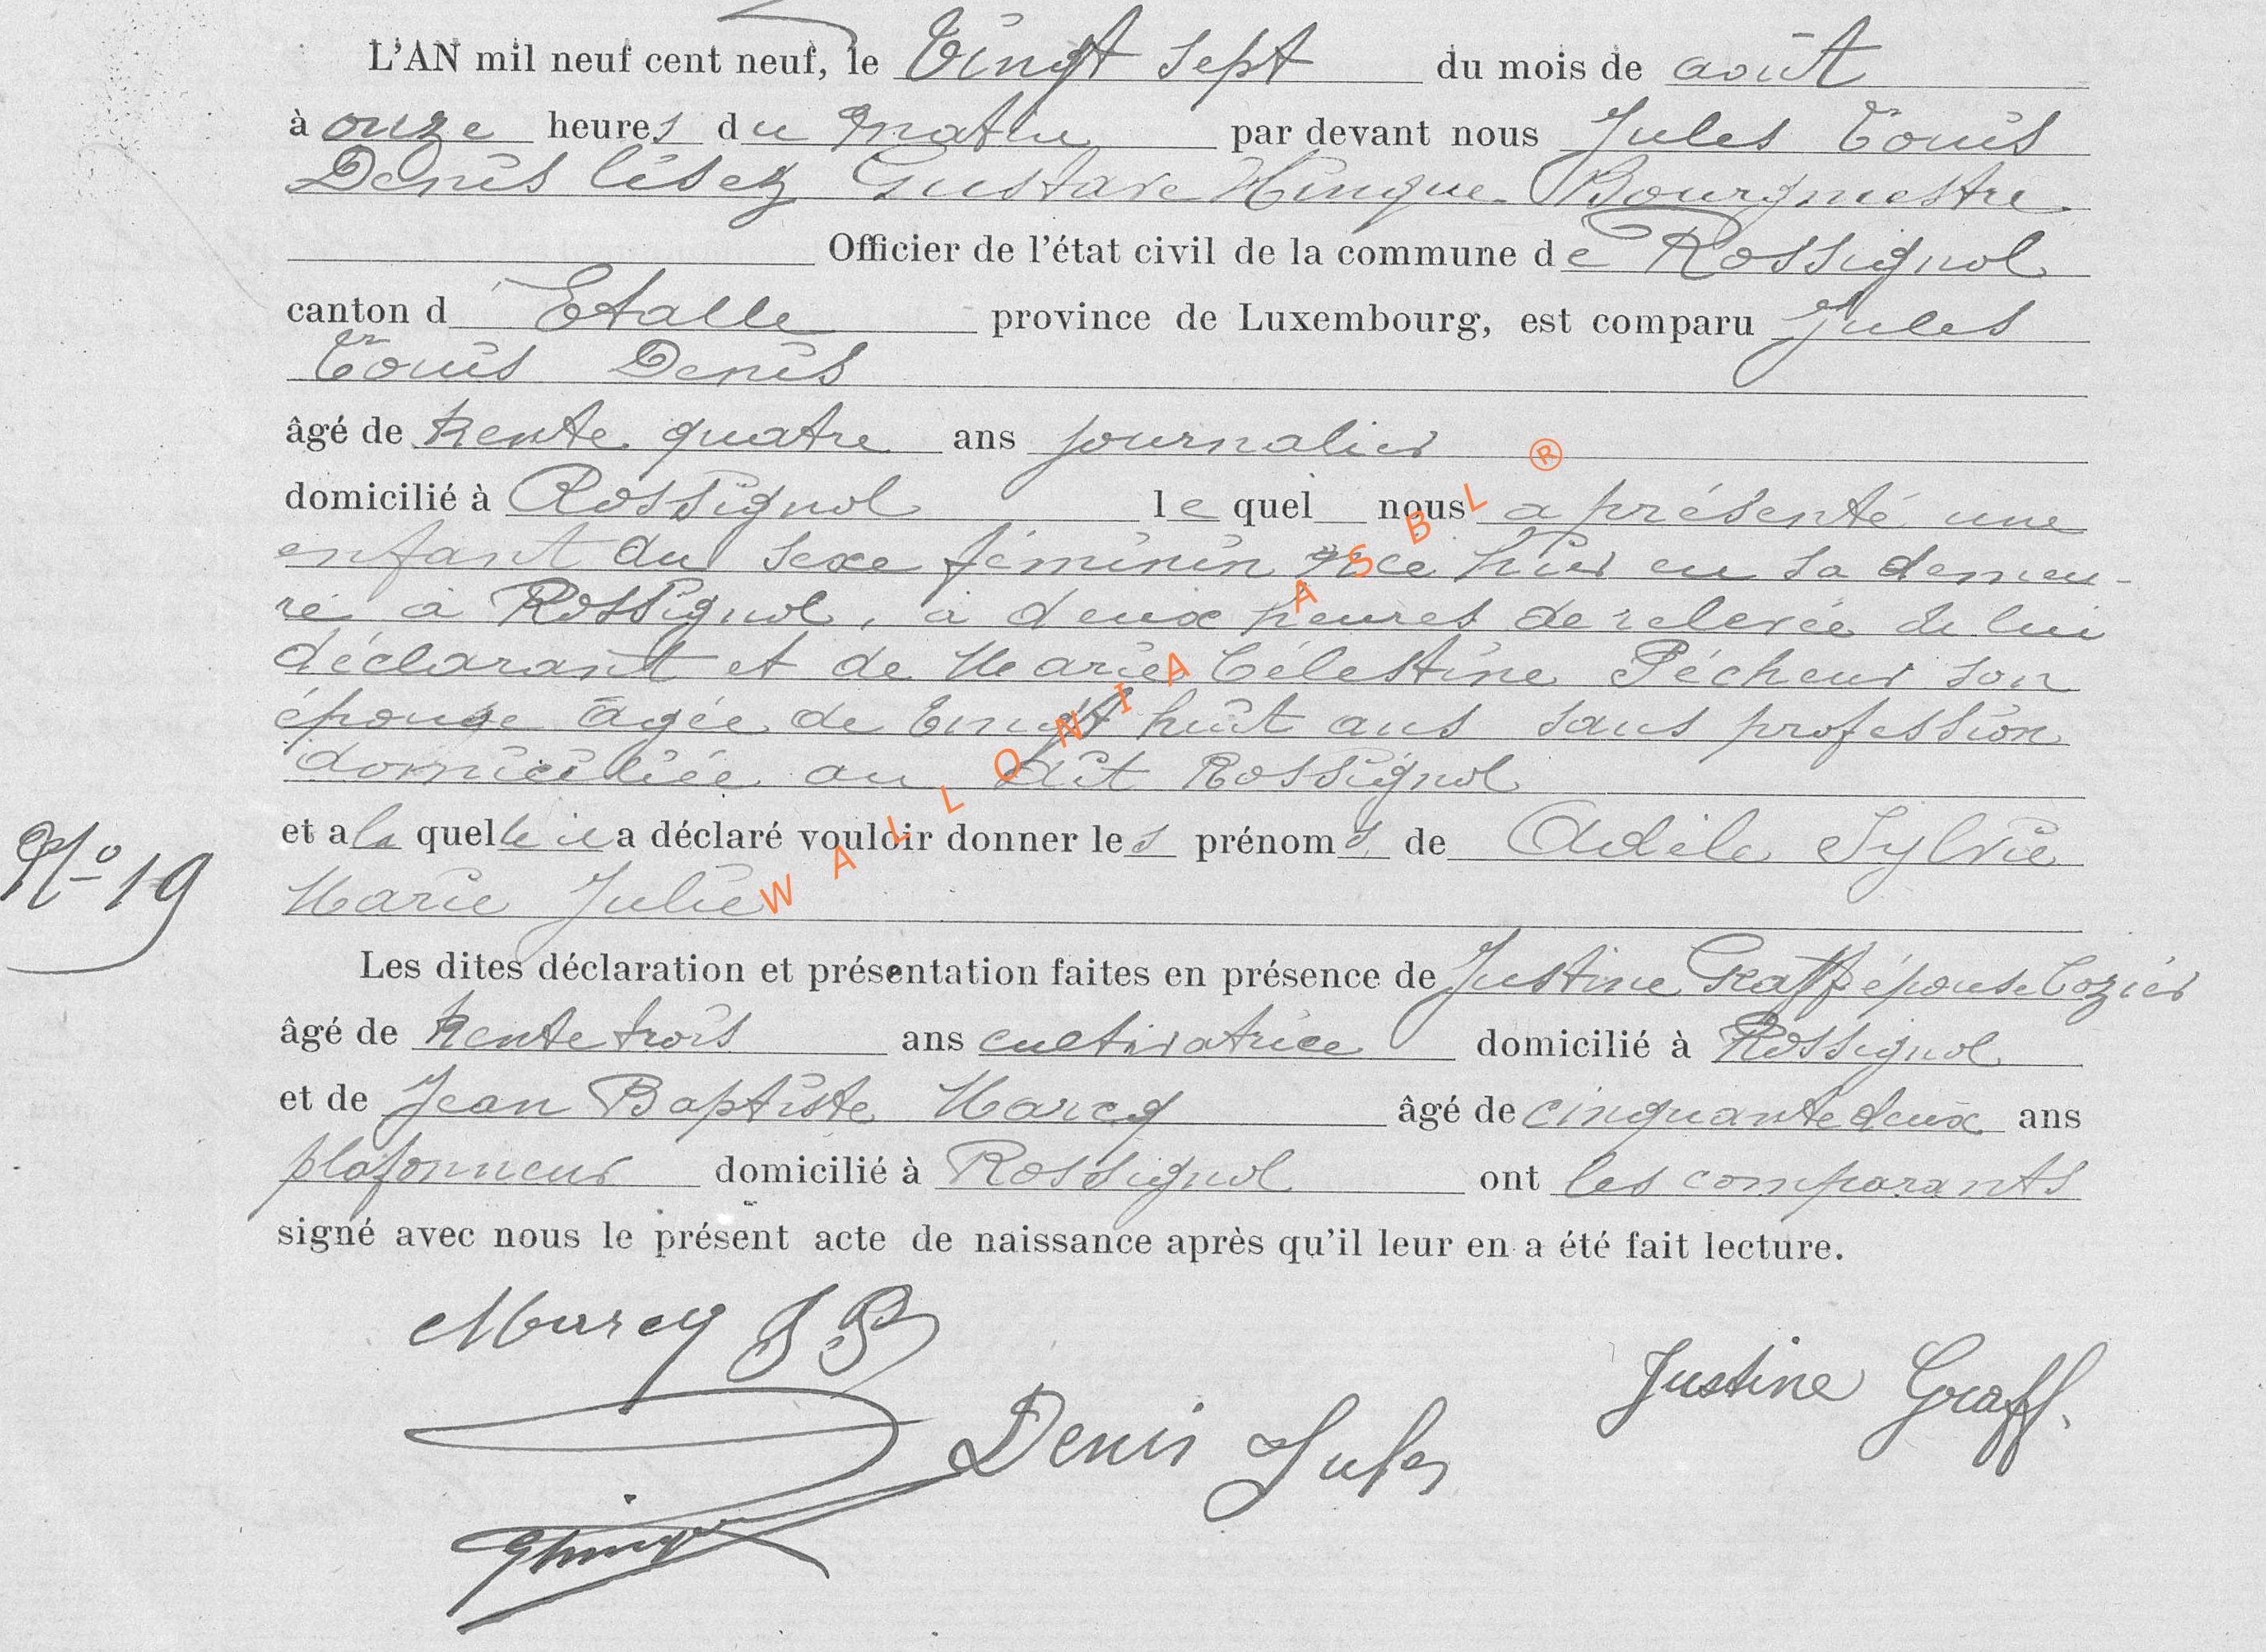 L'AN mil neuf cent neuf, le Vingt sept du mois de août
à onze heures du matin par devant nous Jules Louis
Denis lisez Gustave Hinque Bourgmestre
Officier de l'état civil de la commune de Rossignol
canton d Etalle province de Luxembourg, est comparu Jules
Louis Denis
âgé de trente quatre ans journalier
domicilié à Rossignol le quel nous a présenté une
enfant du sexe féminin née hier en sa demeu-
re à Rossignol, à deux heures de relevée de lui
déclarant et de Marie Célestine Pécheur son
épouse âgée de vingt huit ans sans profession
domiciliée au dit Rossignol
N° 19
et a la quelle il a déclaré vouloir donner les prénoms de Adèle Sylvie
Marie Julie
Les dites déclaration et présentation faites en présence de Justine Graff épouse Cozier
âgé de trente trois ans cultivatrice domicilié à Rossignol
et de Jean Baptiste Marcq âgé de cinquante deux ans
plafonneur domicilié à Rossignol ont les comparants
signé avec nous le présent acte de naissance après qu'il leur en a été fait lecture.
Marcq J B
Justine Graff.
Denis Jules
WALLONIA ASBL ®